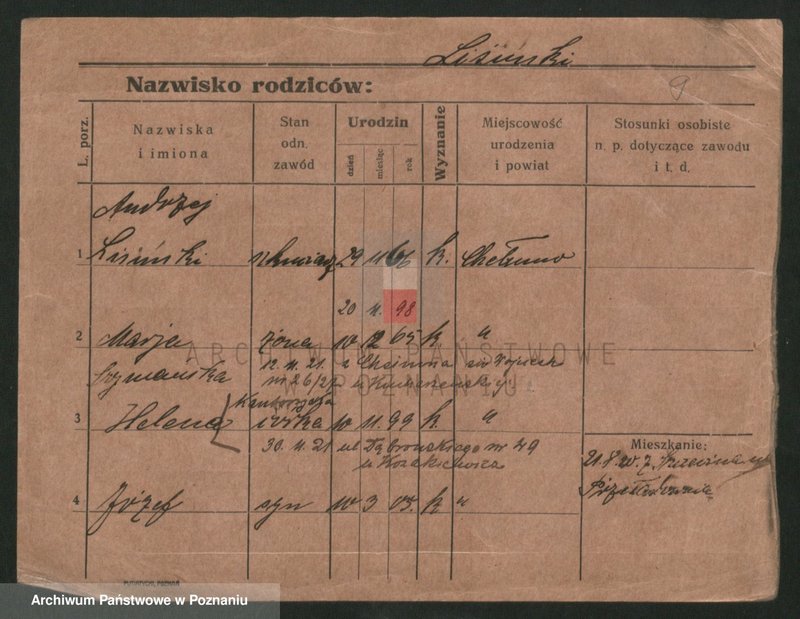 Lisiński
Nazwisko rodziców:
9
L. porz.
Nazwiska
i imiona
Stan
odn.
zawód
Urodzin
dzień
miesiąc
rok
Wyznanie
Miejscowość
urodzenia
i powiat
Stosunki osobiste
n. p. dotyczące zawodu
i t. d.
Andrzej
1 Lisiński 29 11 66 k. Chełmno
20 11. 98
2 Marja żona 10 12 65 k "
ARCHIWUM PAŃSTWOWE
W POZNANIU
Szymańska 12.11.21. z
nr 26/27 u
3 Helena córka 10 11. 99 k. "
30.11.21 ul Dąbrowskiego nr 49
u Kozakiewicza
Mieszkanie:
21.8.20. z
4 Józef syn 10 3 03. k "
PUTIATYCKI, POZNAŃ
Archiwum Państwowe w Poznaniu